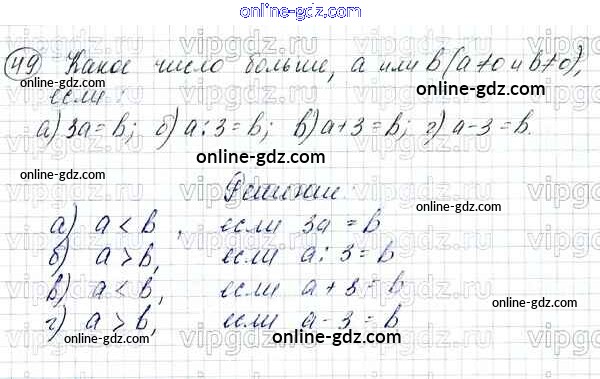 online-gdz.com
49 Какое число больше, a или b (a≠0 и b≠0),
если:
online-gdz.com
а) 3a = b; б) a:3 = b; в) a+3 = b; г) a-3 = b.
online-gdz.com
Решение:
online-gdz.com
а) a < b, если 3a = b
б) a > b, если a : 3 = b
online-gdz.com
в) a < b, если a + 3 = b
online-gdz.com
г) a > b, если a - 3 = b
online-gdz.com